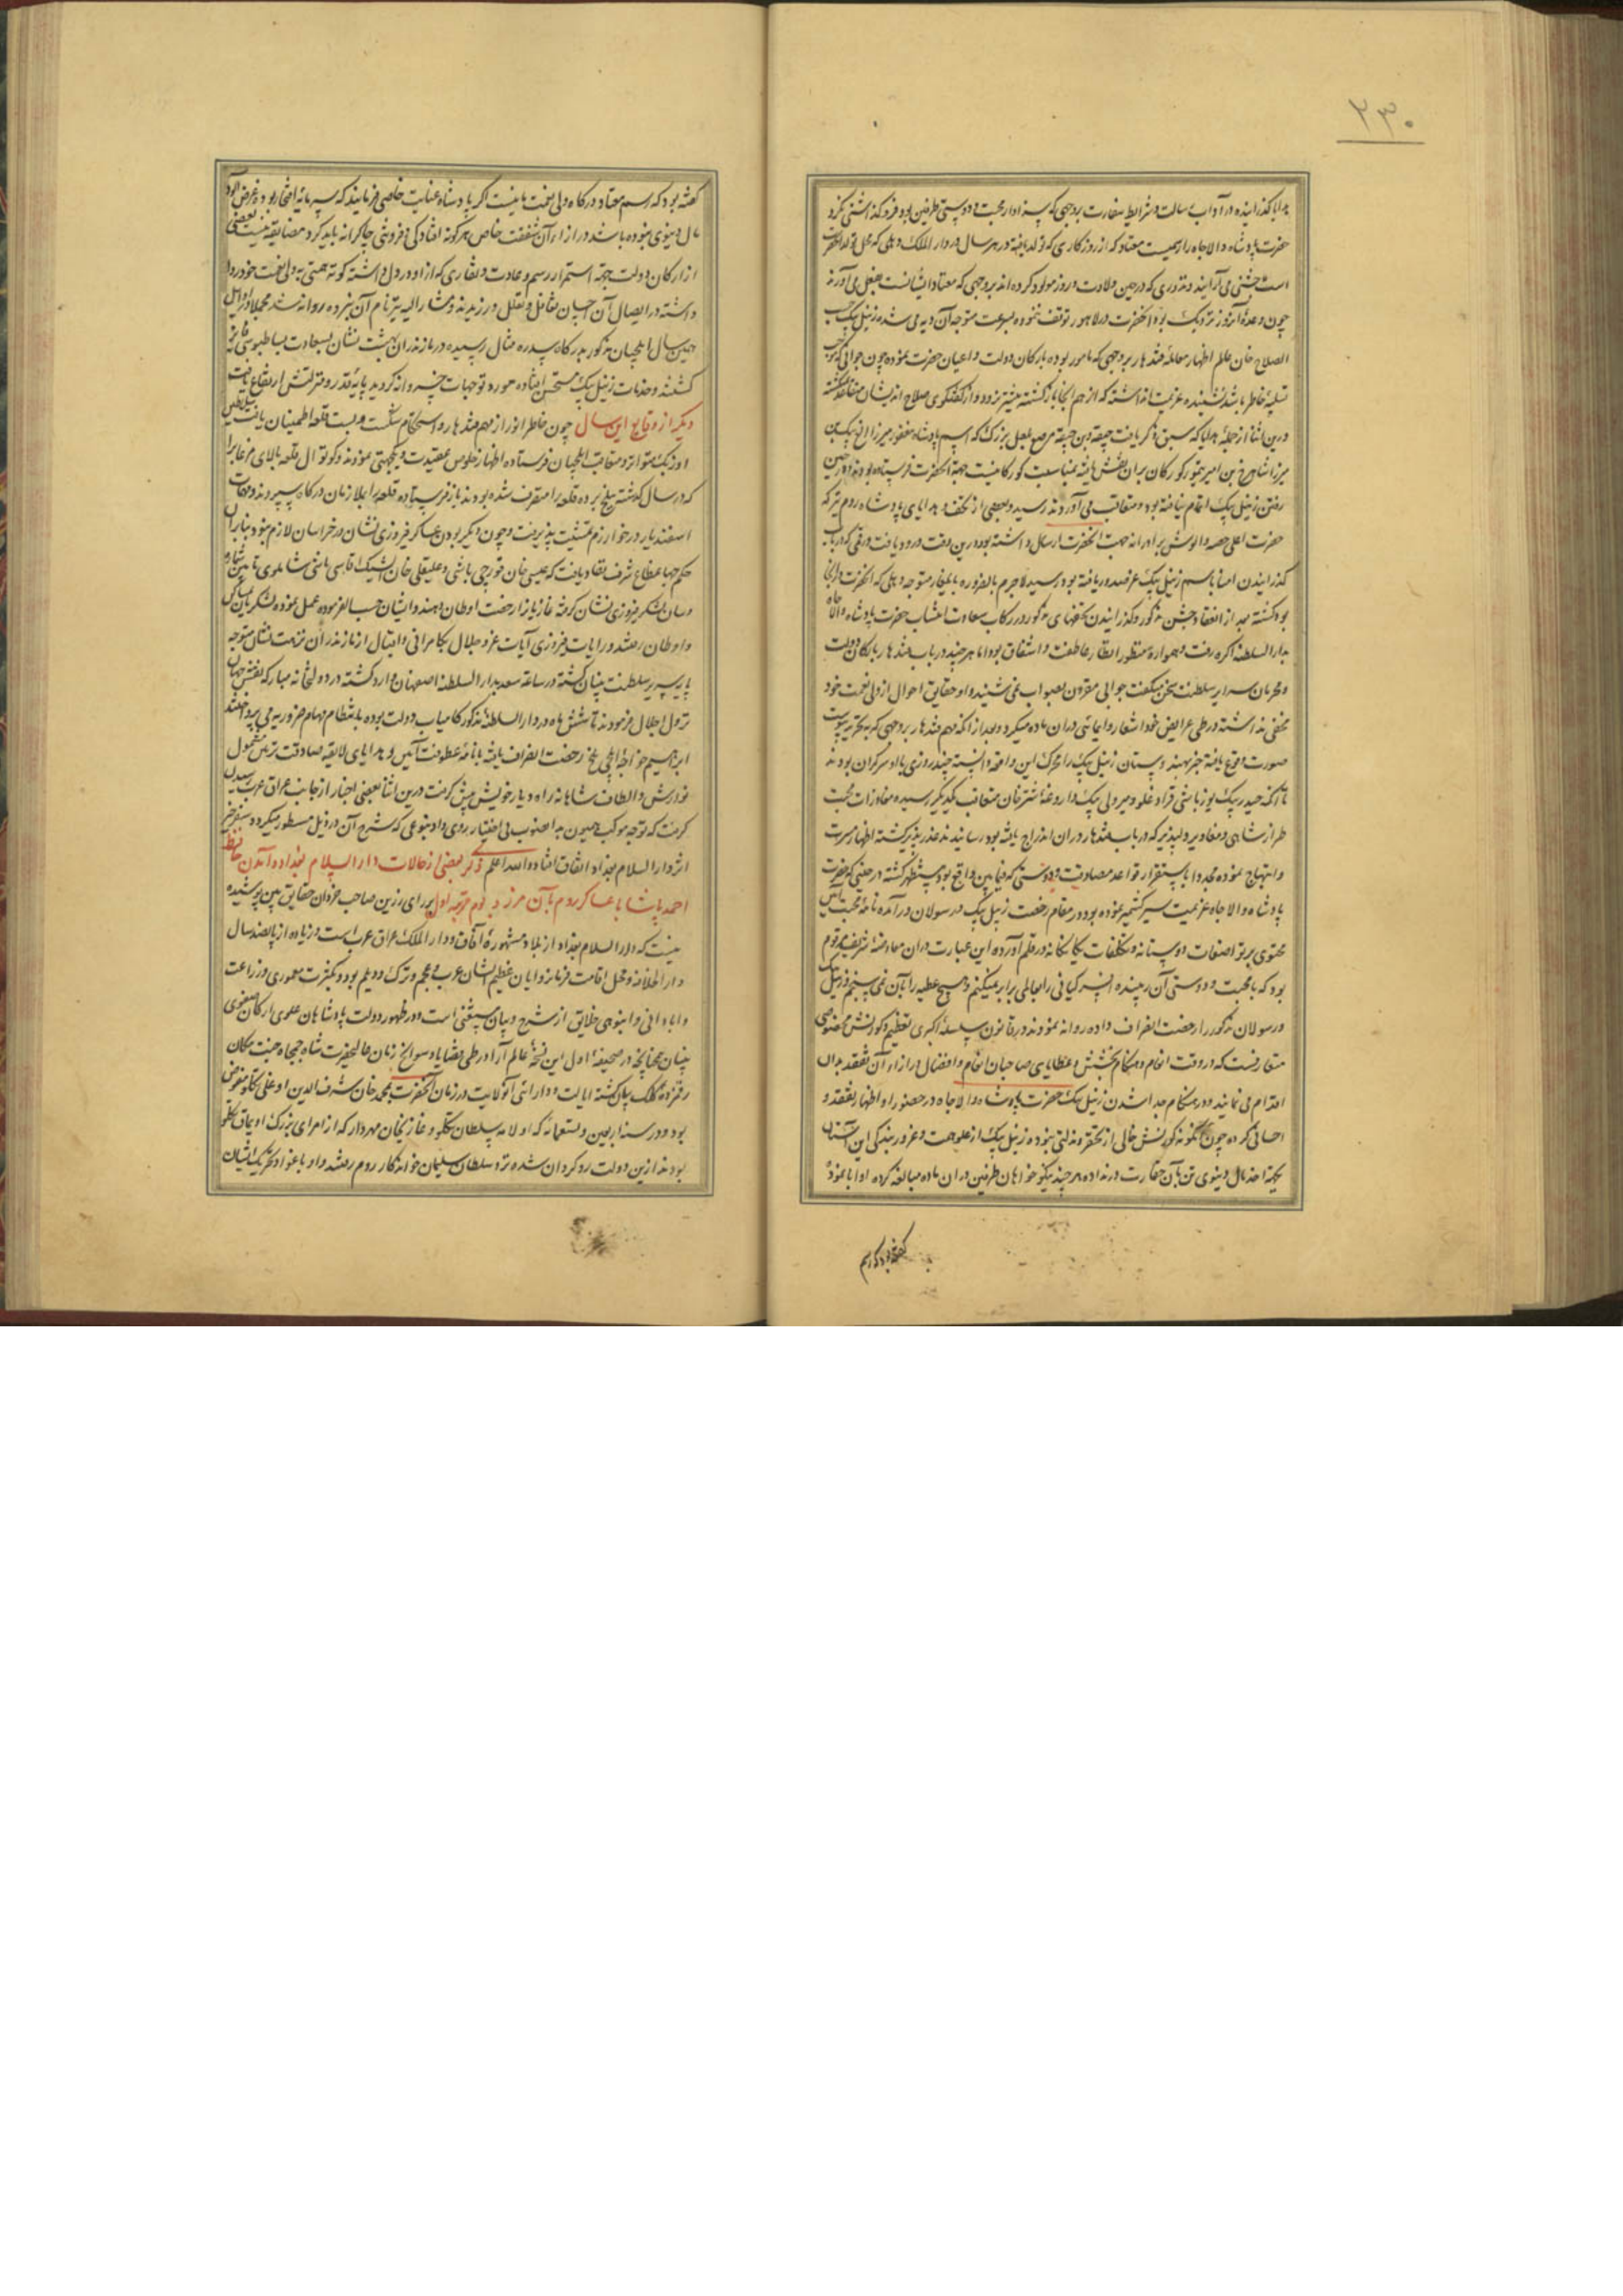 ۲۳۰
هدایا گذرانیده در آداب رسالت و شرایط سفارت بروجهی که سزاوار محبت و دوستی طرفین بود فروگذاشتی نکرد
حضرت پادشاه والاجاه را رسمیست معتاد که از روزگاری که تولد یافته در هر سال در دار الملک دهلی که محل تولد آنحضرت
است جشنی می آرایند و نذری که در حین ولادت و روز مولود کرده اند بروجهی که معتاد ایشانست بفعل می آورند
چون وعدهٔ آنروز نزدیک بود آنحضرت در لاهور توقف ننموده بسرعت متوجه آن دیه می شده زنیل بیک حسب
الصلاح خان عالم اظهار معاملهٔ قندهار بروجهی که مامور بوده بارکان دولت و اعیان حضرت نموده چون جوابی که موجب
تسلیهٔ خاطر باشد نشنیده عزیمت آن داشته که از هم آنجا بازگشته پیشتر نرود و از گفتگوی صلاح اندیشان متقاعد گشته
درین اثنا از جملهٔ هدایا که سبق ذکر یافت جیقه مرصع بلعل بزرگ که اسم پادشاه مغفور میرزا الغ بیک بن
میرزا شاهرخ بن امیر تیمور گورکان بران نقش یافته بمناسبت گورکانیت جهة آنحضرت فرستاده بودند و در حین
رفتن زنیل بیک اتمام نیافته بود و متعاقب می آوردند رسید و بعضی از تحف و هدایای پادشاه روم نیز که
حضرت اعلی حصه و الوش برادرانه جهت آنحضرت ارسال داشته بود درین وقت ورود یافت و رقمی که در باب
گذرانیدن آنها باسم زنیل بیک عز صدور یافته بود رسید لاجرم بالضروره بایلغار متوجه دهلی که آنحضرت در آنجا
بود گشته بعد از انعقاد جشن مذکور و گذرانیدن تحفهای مذکور در رکاب سعادت انتساب حضرت پادشاه والاجاه
بدار السلطنه آگره رفت و همواره منظور انظار عاطفت و اشفاق بود اما هر چند در باب قندهار بارکان دولت
و محرمان سرایر سلطنت سخن میگفت جوابی مقرون بصواب نمی شنید و او حقایق احوال از ولی نعمت خود
مخفی نداشته در طی عرایض خود اشعار و ایمائی دران ماده میکرد و بعد از آنکه مهم قندهار بروجهی که به تحریر پیوست
صورت وقوع یافته خبر بهند رفت زنیل بیک را محرک این واقعه دانسته چند روزی با او سرگران بودند
تا آنکه حیدر بیک یوزباشی قراداغلو و میر ولی بیک داروغهٔ شترخان متعاقب یکدیگر رسیده مفاوضات محبت
طراز شاهی و معاذیر دلپذیر که در باب قندهار دران اندراج یافته بود رسانیدند عذر پذیر گشته اظهار مسرت
و ابتهاج نموده مجددا باستقرار قواعد مصادقت و دوستی که فیمابین واقع بود مستظهر گشته در حینی که حضرت
پادشاه والاجاه عزیمت سیر کشمیر نموده بود در مقام رخصت زنیل بیک و رسولان در آمده نامهٔ محبت آئین
محتوی بر تواضعات دوستانه و تکلفات یگانگانه در قلم آورده این عبارت دران معاوضهٔ شریفه مرقوم
بود که ما محبت و دوستی آن زیبنده افسر کیانی را بعالمی برابر میکنیم و هیچ عطیه را بآن نمی سنجیم و زنیل بیک
و رسولان مذکور را رخصت انصراف داده روانه نمودند و در قانون سلسلهٔ اکبری تعظیم و کورنش مخصوصی
متعارفست که در وقت انعام و هنگام بخشش و عطایای صاحبان انعام و افضال در ازاء آن تفقد بدان
اقدام می نمایند و در هنگام جدا شدن زنیل بیک حضرت پادشاه والاجاه در حضور او اظهار تفقد و
احسانی کرده چون اینگونه کورنش خالی از تحقر و مذلتی نبوده زنیل بیک از علو همت و غرور بندگی این آستان
بجهة اخذ مال دنیوی تن بآن حقارت در نداده هر چند نیکوخواهان طرفین دران ماده مبالغه کرده او ابا نموده
گفته بود که رسم
گفته بود که رسم معتاد درگاه ولی نعمت ما نیست اگر پادشاه عنایت خاصی فرمایند که سرمایهٔ افتخار بوده غرض آلود
مال دنیوی نبوده باشد در ازاء آن شفقت خاص هرگونه افتادگی و فروتنی چاکرانه باید کرد مضایقه نیست بعضی
از ارکان دولت جهة استمرار رسم و عادت و نقاری که از او در دل داشته کوته همتی به ولی نعمت خود روا
داشته در ایصال آن احسان تغافل و تعلل ورزیدند و مشارالیه نیز نام آن نبرده روانه شد مجملا در اوایل
همین سال ایلچیان مذکور بدرگاه سدره مثال رسیده در مازندران بهشت نشان بسعادت بساط بوسی فایز
گشتند و خدمات زنیل بیک مستحسن افتاده مورد توجهات خسروانه گردید پایهٔ قدر و منزلتش ارتفاع یافت
دیگر از وقایع این سال چون خاطر انور از مهم قندهار و استحکام شکست و بست قلعه اطمینان یافت سلاطین
اوزبک متواتر و متعاقب ایلچیان فرستاده اظهار خلوص عقیدت و یکجهتی نمودند و کوتوال قلعه بالای مرغاب را
که در سال گذشته ببلخ برده قلعه را متصرف شده بودند باز فرستاده قلعه را بملازمان درگاه سپردند و مهمات
اسفندیار در خوارزم تمشیت پذیرفت و چون دیگر بودن عساکر فیروزی نشان در خراسان لازم نبود بنابران
حکم جهانمطاع شرف نفاذ یافت که عیسی خان قورچی باشی و علیقلی خان ایشیک آقاسی باشی شاملوی تا بین شاره
وسان لشکر فیروزی نشان گرفته غازیان را رخصت اوطان دهند و ایشان حسب الفرموده عمل نموده لشکریان بمساکن
و اوطان رفتند و رایات فیروزی آیات عز و جلال بکامرانی و اقبال از مازندران نزهت نشان متوجه
پای سریر سلطنت بنیان گشته در ساعت سعد بدار السلطنه اصفهان وارد گشته در دولتخانه مبارکه نقش جهان
نزول اجلال فرمودند تا شش ماه در دار السلطنهٔ مذکور کامیاب دولت بوده بانتظام مهام ضروریه می پرداختند
ابراهیم خواجه ایلچی بلخ رخصت انصراف یافته با نامهٔ عطوفت آئین و هدایای لایقه صادقت ترین مشمول
نوازش و الطاف شاهانه راه دیار خویش پیش گرفت درین اثنا بعضی اخبار از جانب عراق عرب رسیدن
گرفت که توجه موکب همیون بدانصوب بی اختیار روی داد بنوعی که شرح آن در ذیل مسطور میگردد و سفر خیر
اثر دار السلام بغداد اتفاق افتاد والله اعلم ذکر بعضی از حالات دار السلام بغداد و آمدن حافظ
احمد پاشا با عساکر روم بآن مرز و بوم مرتبه اول بر رای رزین صاحب خردان حقایق بین پوشیده
نیست که دار السلام بغداد از بلاد مشهورهٔ آفاق و دار الملک عراق عرب است و زیاده از پانصد سال
دار الخلافه و محل اقامت فرمانروایان عظیم الشان عرب و عجم و ترک و دیلم بود و بکثرت معموری و زراعت
و آبادانی و انبوهی خلایق از شرح و بیان مستغنی است و در ظهور دولت پادشاهان علوی ارکان صفوی
بنیان چنانچه در صحیفهٔ اول این نسخهٔ عالم آرا در طی قضایا و سوانح زمان خاقانحضرت شاه جمجاه جنت مکان
رقمزده کلک بیان گشته ایالت و دارائی آنولایت در زمان آنحضرت بمحمد خان شرف الدین اوغلی تکلو مفوض
بود و در سنه اربعین و تسعمائه که اولامه سلطان تکلو و غازیخان مهردار که از امرای بزرگ اویماق تکلو
بودند ازین دولت روگردان شده نزد سلطان سلیمان خواندکار روم رفتند و او باغوا و تحریک ایشان